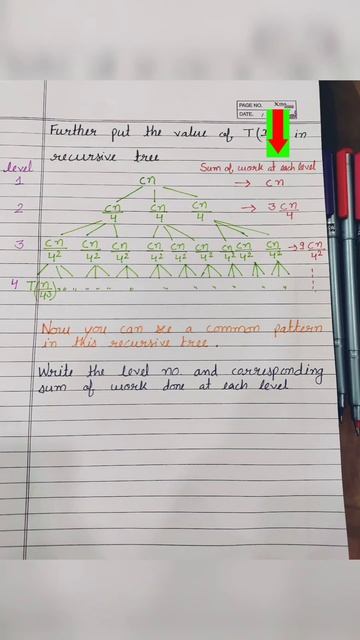 PAGE NO.
DATE: /
Further put the value of T( in
recursive tree
level Sum of work at each level
1 cn → cn
2 cn/4 cn/4 cn/4 → 3cn/4
3 cn/4² cn/4² cn/4² cn/4² cn/4² cn/4² cn/4² cn/4² cn/4² → 9cn/4²
4 T(n/4³)
Now you can see a common pattern
in this recursive tree.
Write the level no. and carresponding
sum of work done at each level